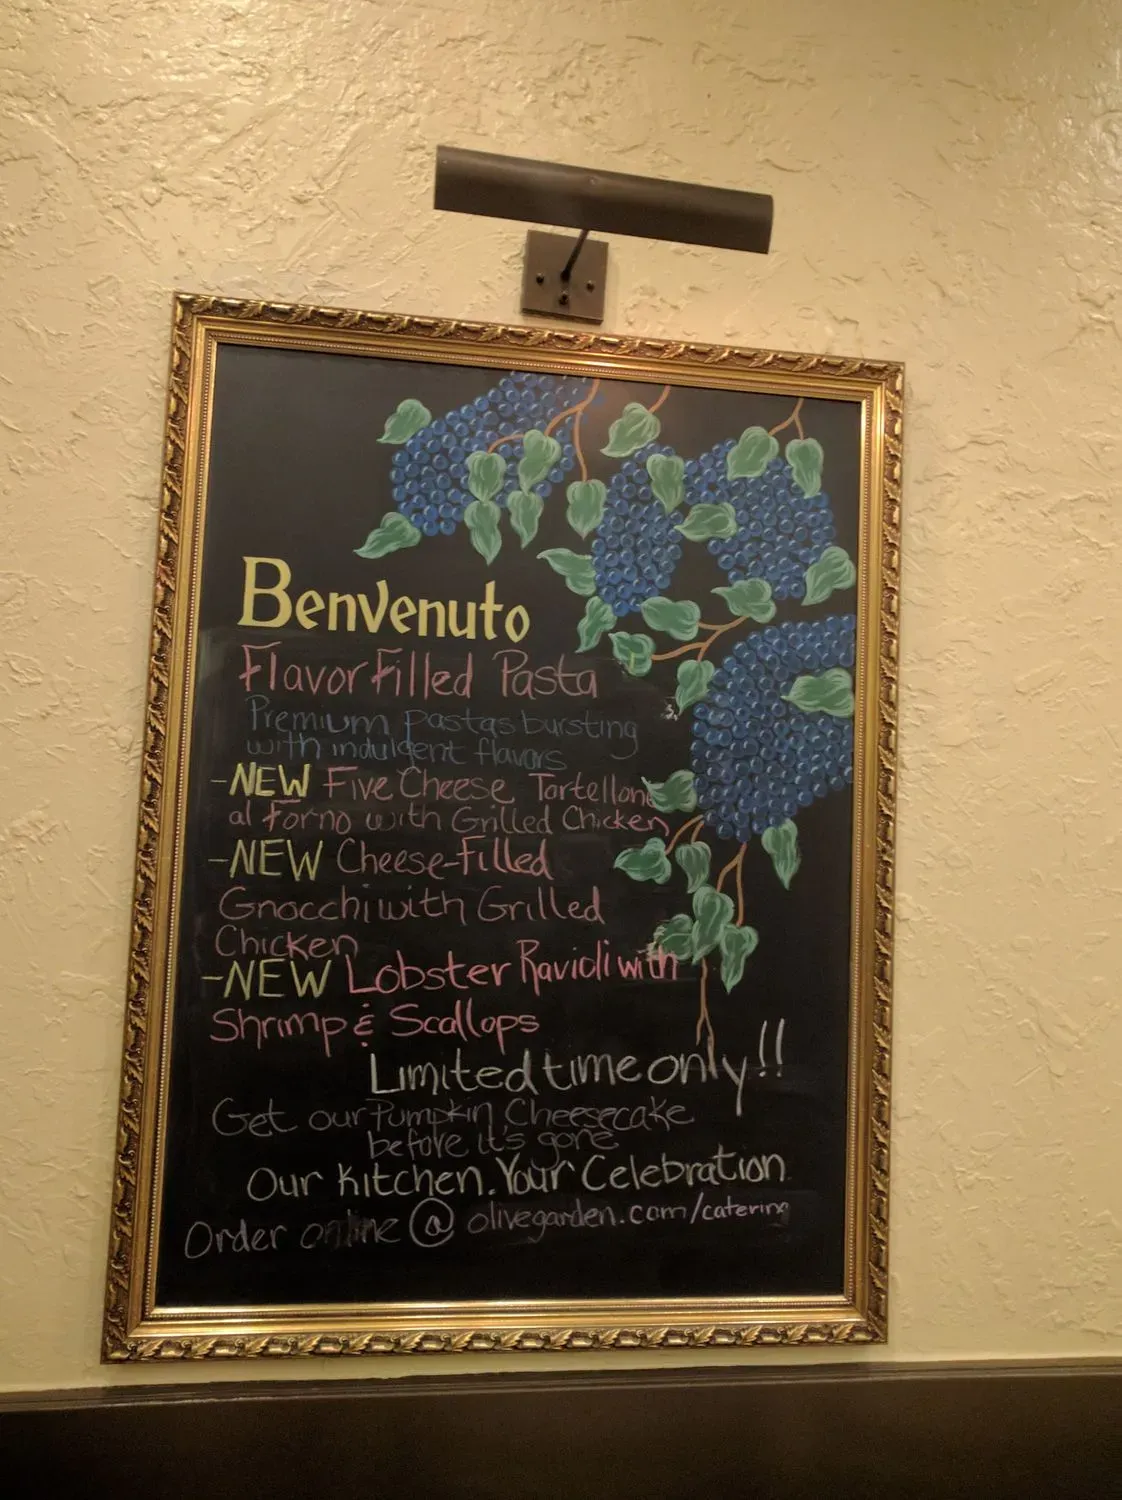 Benvenuto
Flavor Filled Pasta
Premium pastas bursting
with indulgent flavors
-NEW Five Cheese Tortelloni
al Forno with Grilled Chicken
-NEW Cheese-Filled
Gnocchi with Grilled
Chicken
-NEW Lobster Ravioli with
Shrimp & Scallops
Limited time only!!
Get our Pumpkin Cheesecake
before it's gone
Our Kitchen. Your Celebration
Order online @ olivegarden.com/catering